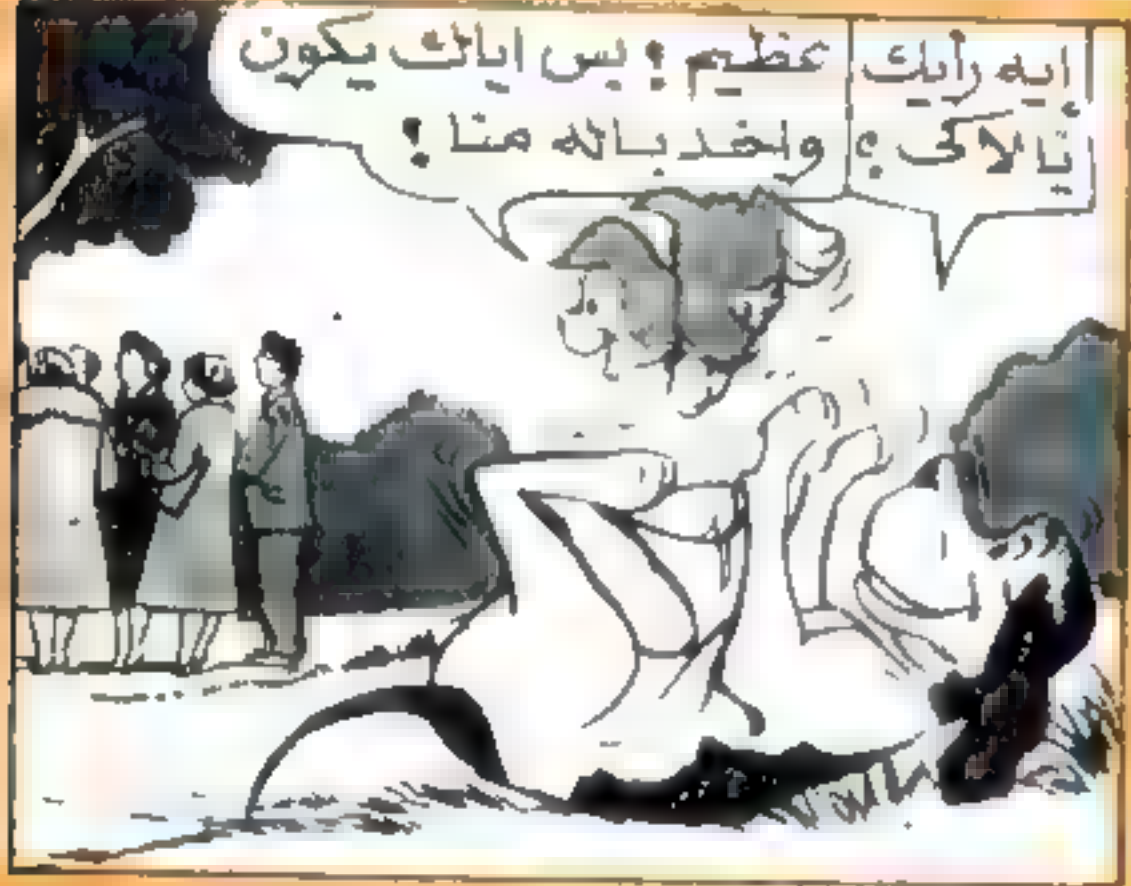 إيه رأيك
يا لاكى ؟
عظيم ! بس اياك يكون
واخد باله منا !